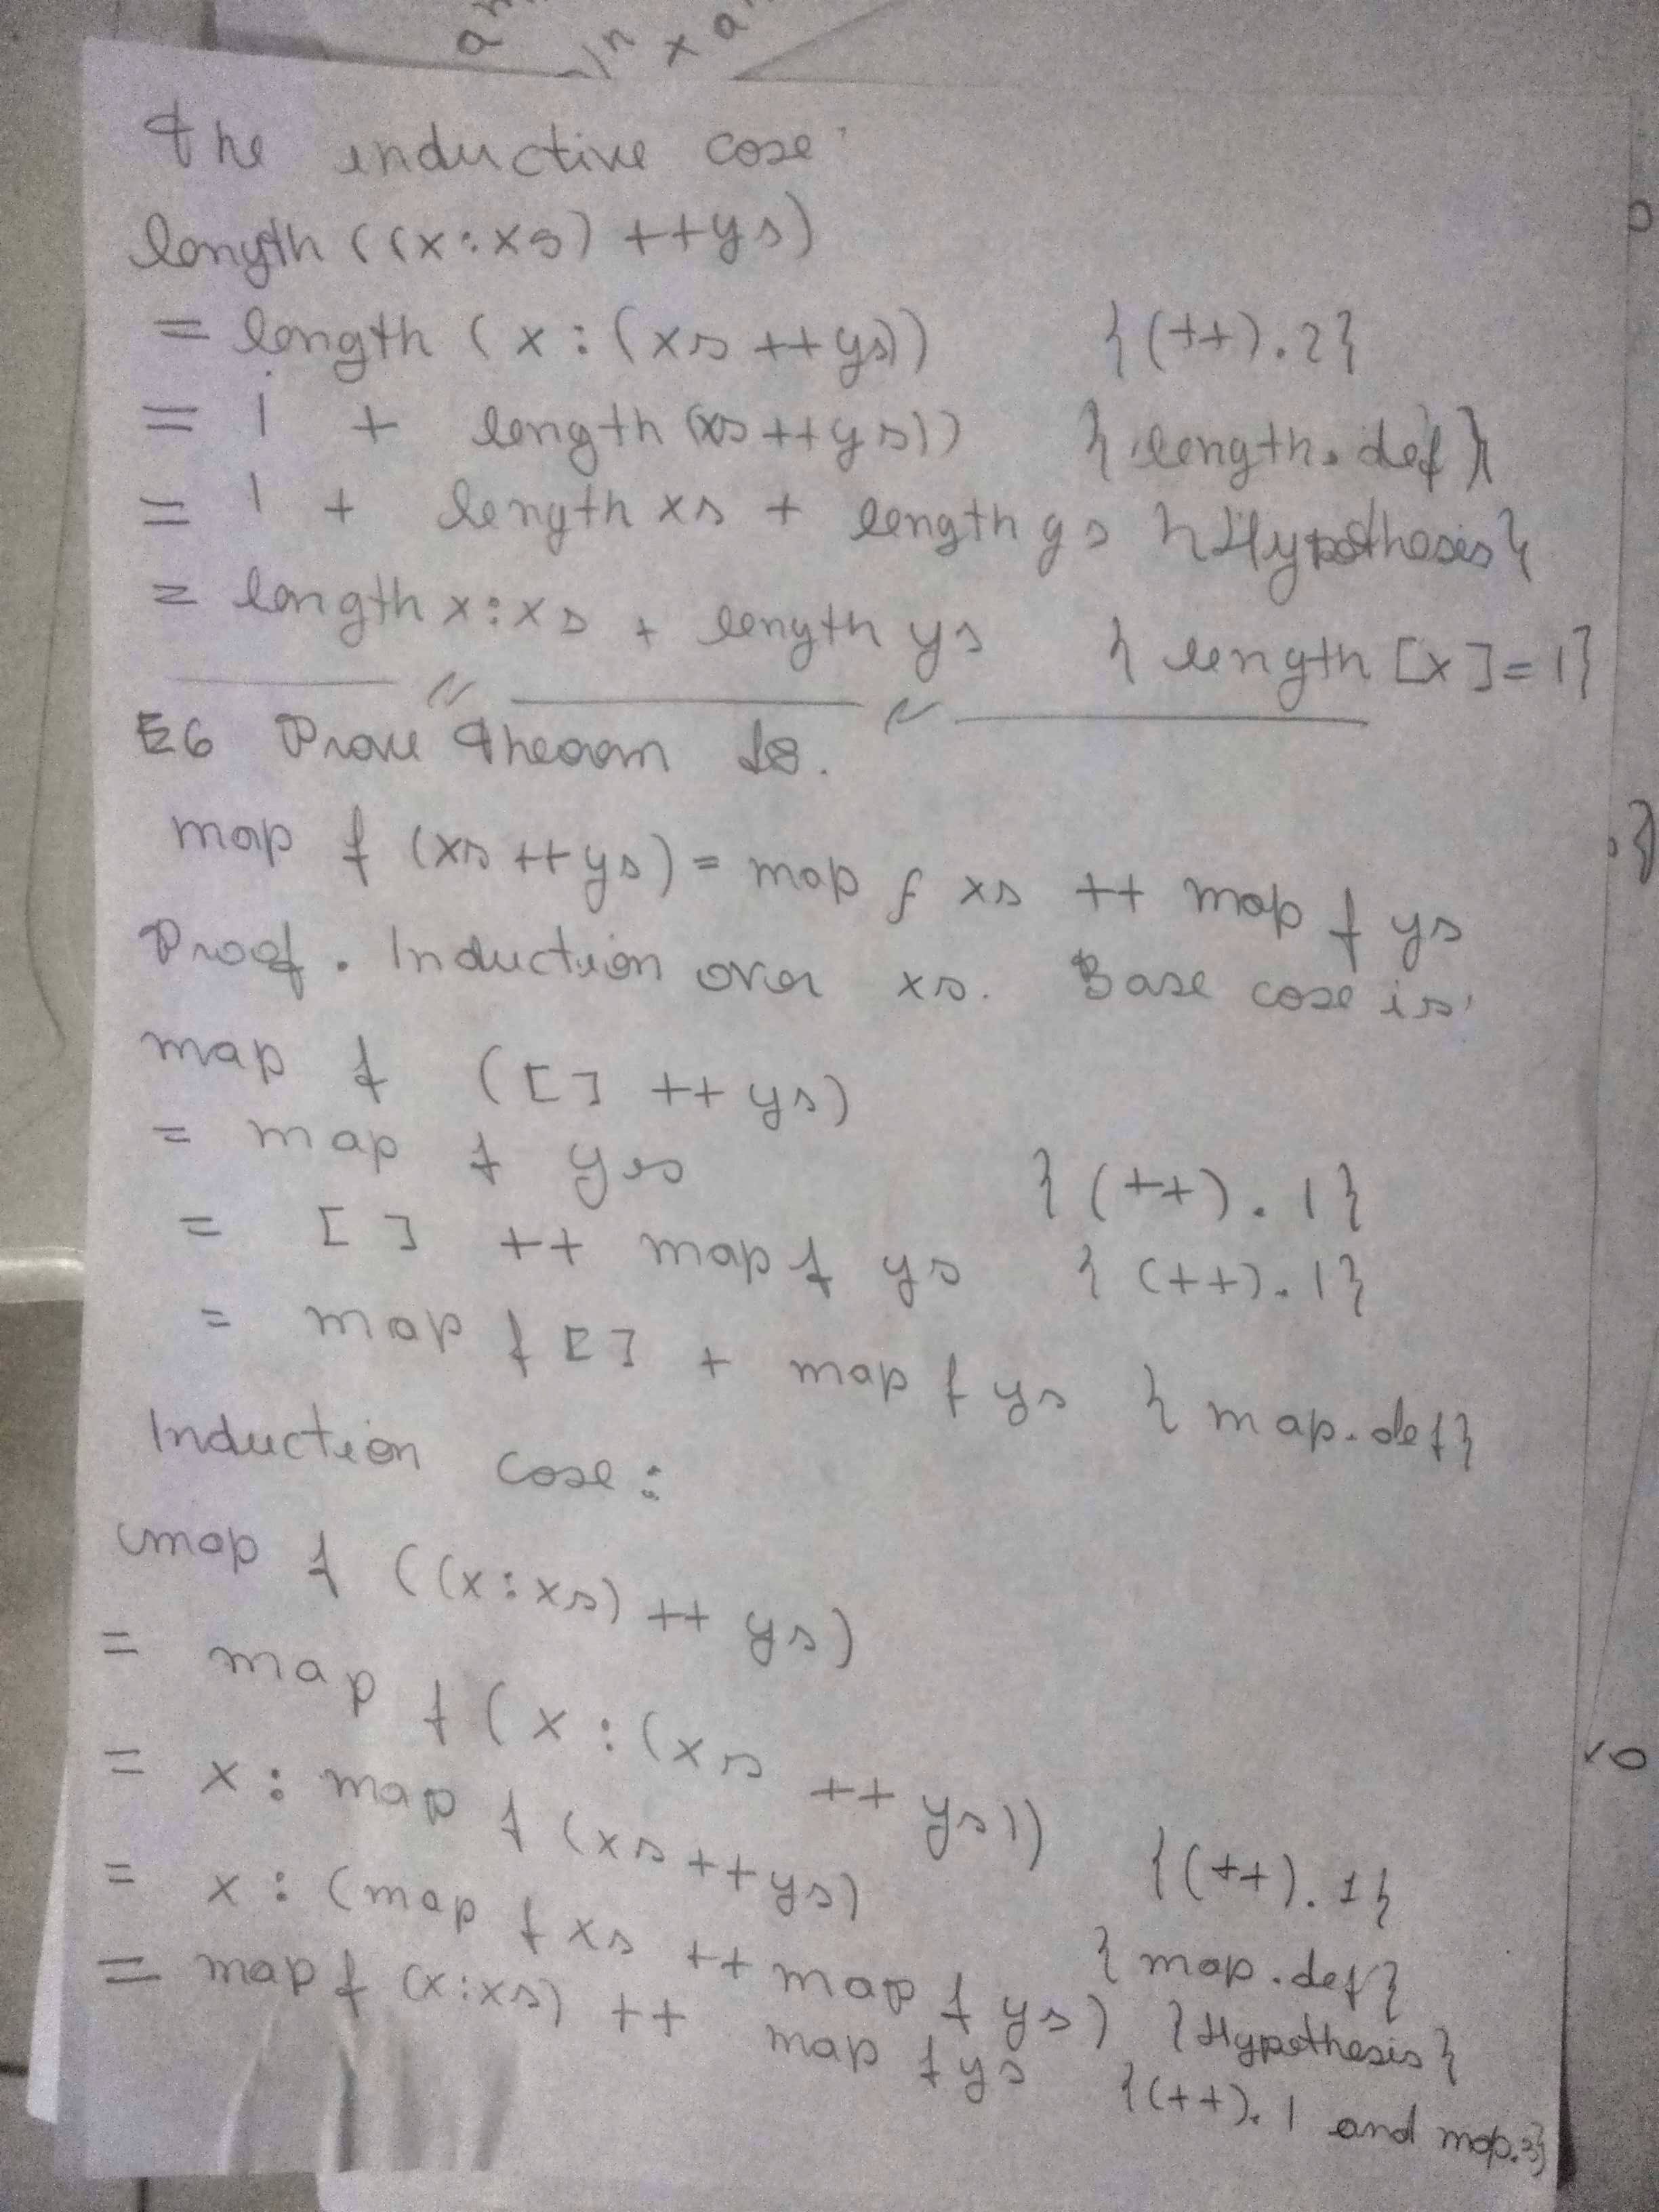 an
in x a
The inductive case:
length ((x:xs) ++ys)
= length (x:(xs ++ys)) {(++).2}
= 1 + length (xs++ys)) {length.def}
= 1 + length xs + length ys {Hypothesis}
= length x:xs + length ys {length [x]=1}
E6 Prove Theorem 18.
map f (xs ++ys) = map f xs ++ map f ys
Proof. Induction over xs. Base case is:
map f ([] ++ ys)
= map f ys {(++).1}
= [] ++ map f ys {(++).1}
= map f [] + map f ys {map.def}
Induction case:
map f ((x:xs) ++ ys)
= map f (x:(xs ++ ys)) {(++).1}
= x: map f (xs ++ys) {map.def}
= x: (map f xs ++ map f ys) {Hypothesis}
= map f (x:xs) ++ map f ys {(++).1 and map.2}